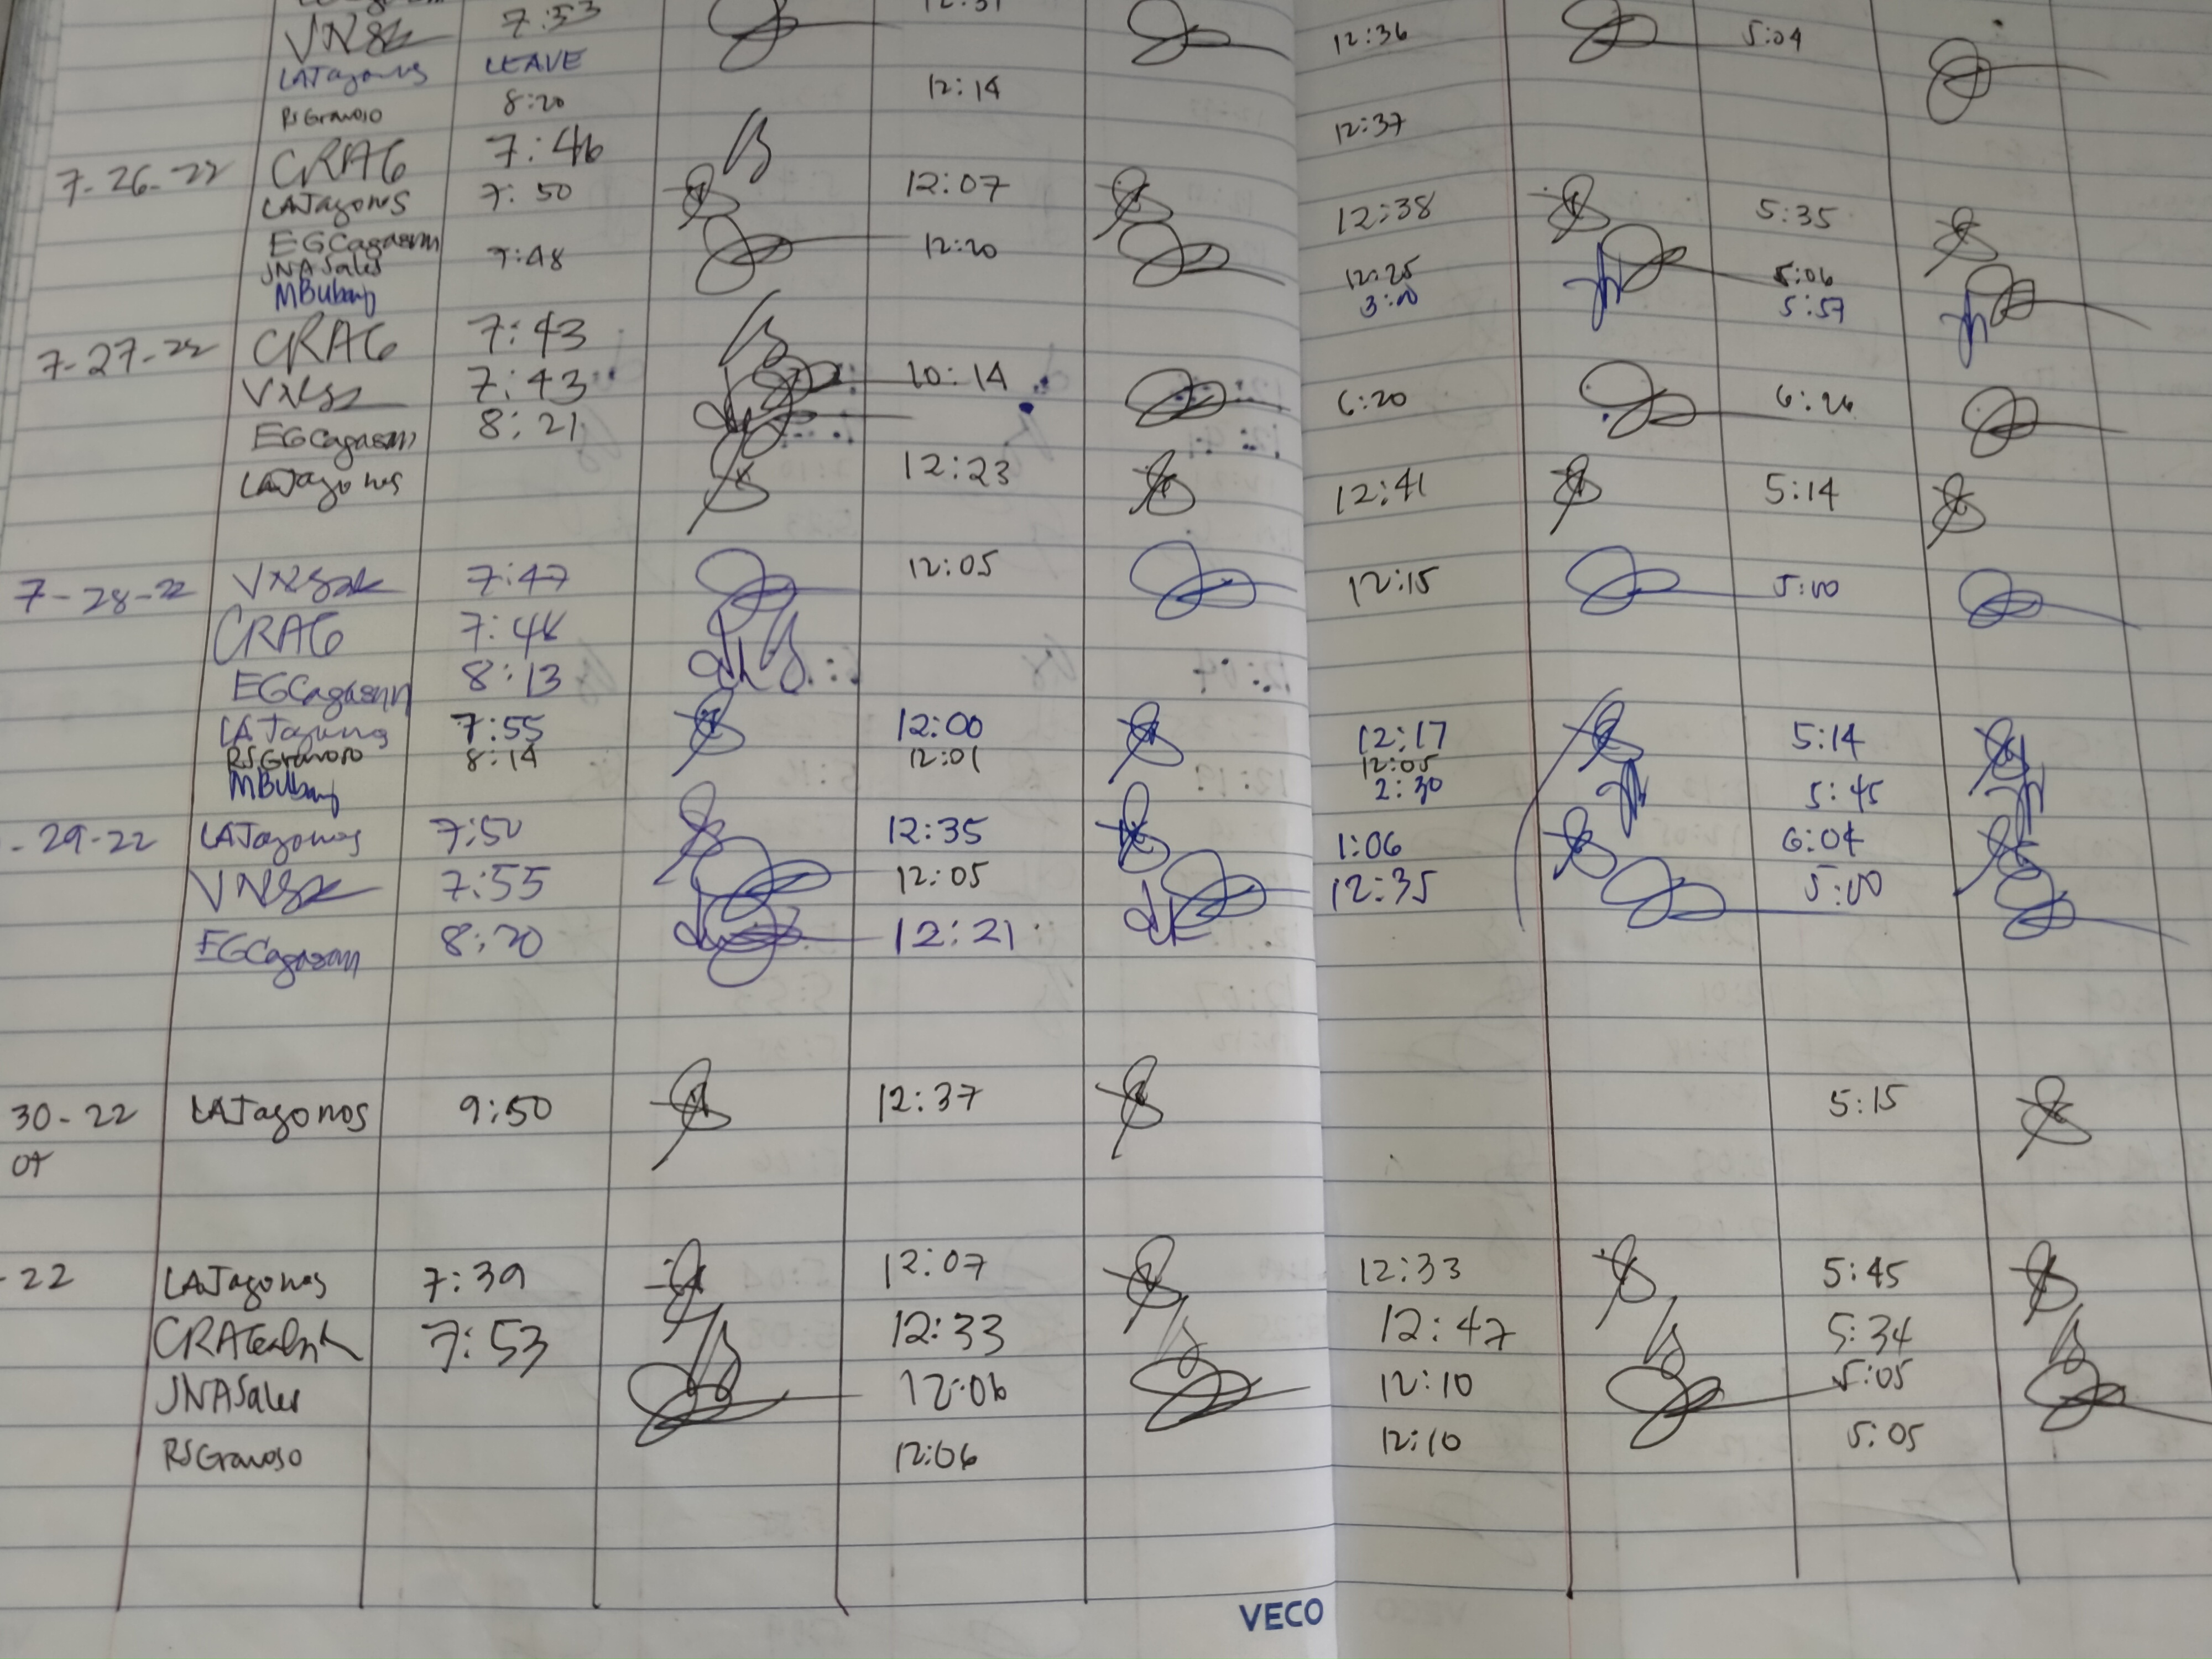 7:53 12:36 5:04
LATagonos LEAVE
RSGravoso 8:20 12:14 12:37
7-26-22 CRAG 7:46
LATagonos 7:50 12:07 12:38 5:35
EGCagasan
JNASales 7:48 12:20 12:25 5:06
MBubanj 3:00 5:57
7-27-22 CRAG 7:43
7:43 10:14 6:20 6:26
EGCagasan 8:21
LATagonos 12:23 12:41 5:14
7-28-22 7:47 12:05 12:15 5:00
CRAG
EGCagasan 8:13
LATagonos 7:55 12:00 12:17 5:14
RSGravoso 8:14 12:01 12:05
2:30 5:45
-29-22 LATagonos 7:50 12:35 1:06 6:04
7:55 12:05 12:35 5:00
EGCagasan 8:20 12:21
30-22 LATagonos 9:50 12:37 5:15
OT
-22 LATagonos 7:39 12:07 12:33 5:45
7:53 12:33 12:47 5:34
JNASales 12:06 12:10 5:05
RSGravoso 12:06 12:10 5:05
VECO